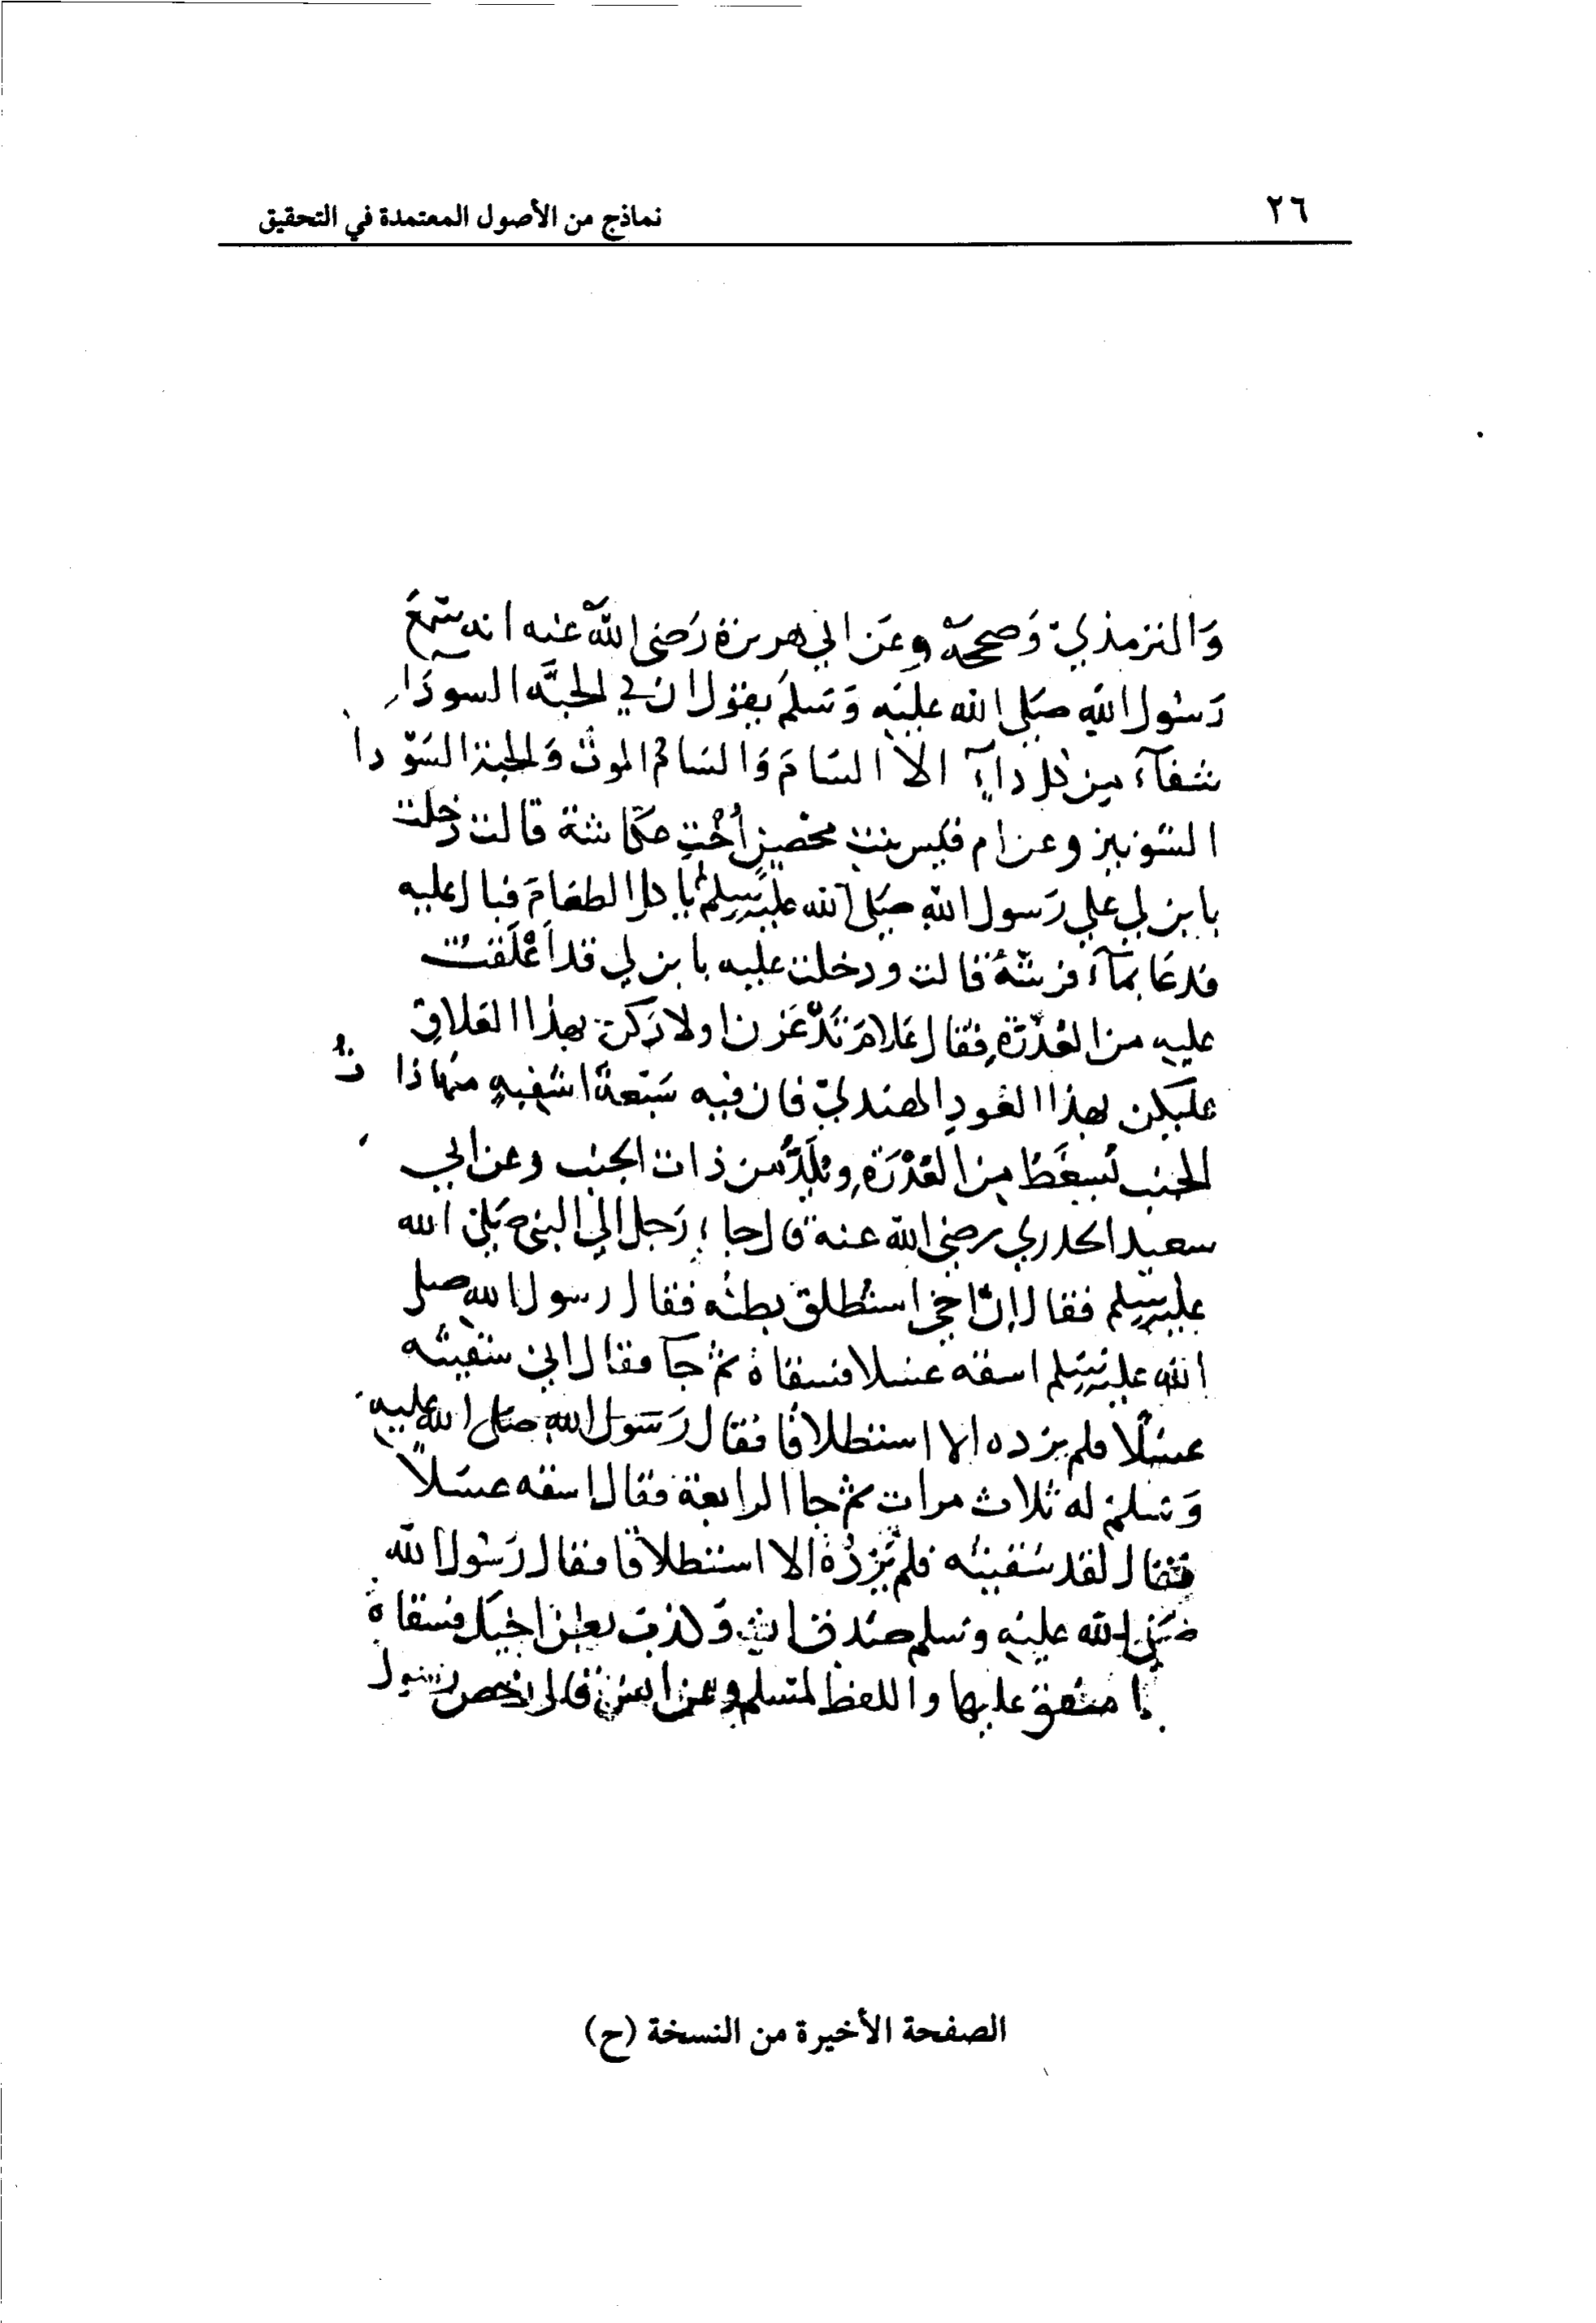 ٢٦
نماذج من الأصول المعتمدة في التحقيق
وَالترمذيّ وَصححه وعَن ابي هريرة رَضى الله عنه انه سَمعَ
رَسُول الله صَلى الله عليْه وَسَلمَ يقول ان في الحبَّه السودَا
شفآء من كل دآءٍ الا السَّامَ وَالسَام الموت وَالحبة السَوْدا
الشونيز وعن ام قيس بنت محصنٍ أُخْتِ عكاشة قالت دخلت
بابن لي علي رَسول الله صَلى الله عليه وسلم لم يا كل الطعَامَ فبال عليه
فدعَا بمآء فرشَّهُ قالت ودخلت عليه بابن لي قد اَعْلَقتُ
عليه من العُذْرَةِ فقال عَلامَ تَدْغَرْن اولادَكن بهذا العلاق
عليكن بهذا العُودِ الهنديّ فان فيه سَبْعةَ اشفيهٍ منها ذاتُ
الجنب يُسعَطُ من العُذْرَةِ ويُلَدُّ من ذات الجنب وعن ابي
سعيد الخدري رضى الله عنه قال جاء رَجل الي النبى صَلى الله
عليه وسلم فقال إنّ اخي استُطلق بطنُه فقال رسول الله صلى
الله عليه وسلم اسقه عسلا فسقاهُ ثمّ جآ فقال اني سقيته
عسَلًا فلم يزده الا استطلاقًا فقال رَسَول الله صلى الله عليه
وَسَلم له ثلاث مرات ثم جا الرابعة فقال اسقه عسَلاً
فقال لقد سَقيتُه فلم يَزدْهُ الا استطلاقا فقال رَسُول الله
صَلى الله عليْه وسلم صَدق الله وَكذبَ بطن اخيك فسقاهُ
متفق عليها واللفظ لمسلم وعن انس قال رخص رسول
الصفحة الأخيرة من النسخة (ح)